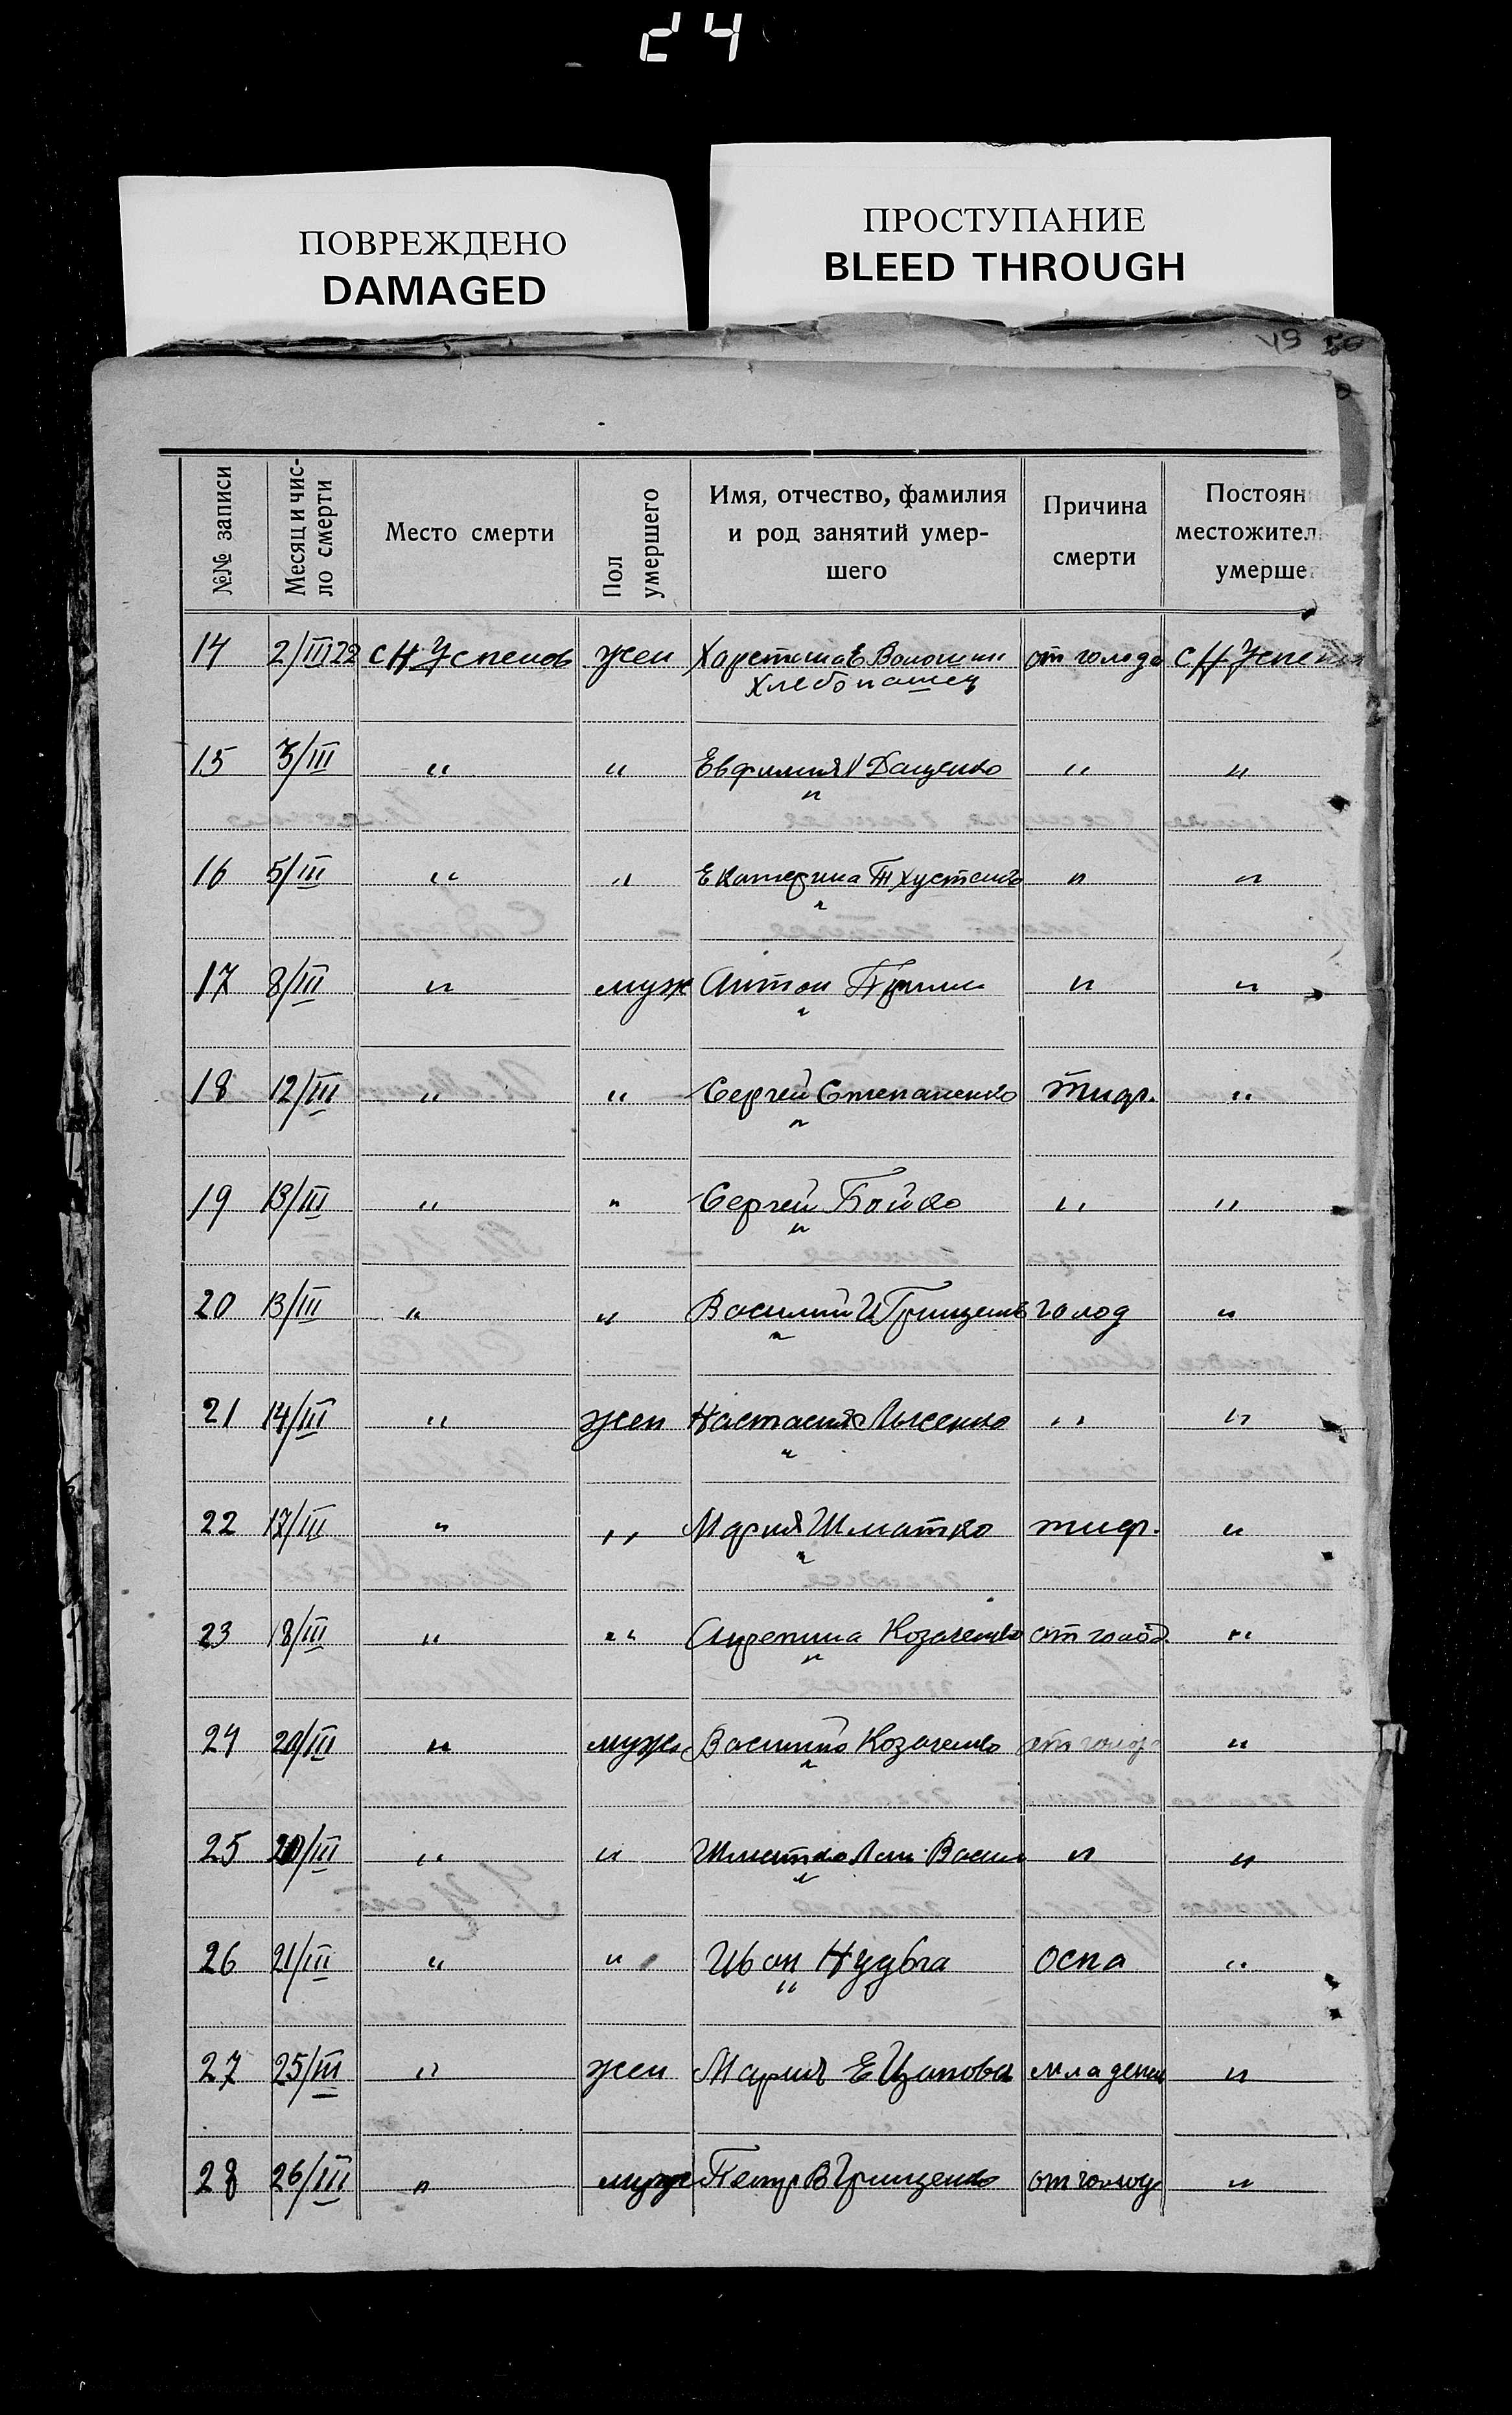 24
ПОВРЕЖДЕНО
DAMAGED
ПРОСТУПАНИЕ
BLEED THROUGH
№№ записи
Месяц и чис-
ло смерти
Место смерти
Пол
умершего
Имя, отчество, фамилия
и род занятий умер-
шего
Причина
смерти
Постоян
местожител
умерше
14 2/III 22 с Н Успенов жен Е Волошин от голода с Н Успен
Хлебопашец
15 3/III " " Евфимия Даценко " "
"
16 5/III " " Екатерина Т Хустенко " "
"
17 8/III " муж Антон " "
"
18 12/III " " Сергей Степаненко тиф. "
"
19 13/III " " Сергей Бойко " "
"
20 13/III " " Василий И Грищенко голод "
"
21 14/III " жен Настасия Лысенко " "
"
22 17/III " " Мария Шматко тиф. "
"
23 18/III " " Козаченко от голод "
"
24 20/III " муж Василий Козаченко от голод "
"
25 20/III " " Шматко " "
"
26 21/III " " Иван Нудьга оспа "
"
27 25/III " жен Мария Е младенч "
28 26/III " муж Петр В Грищенко от голод "